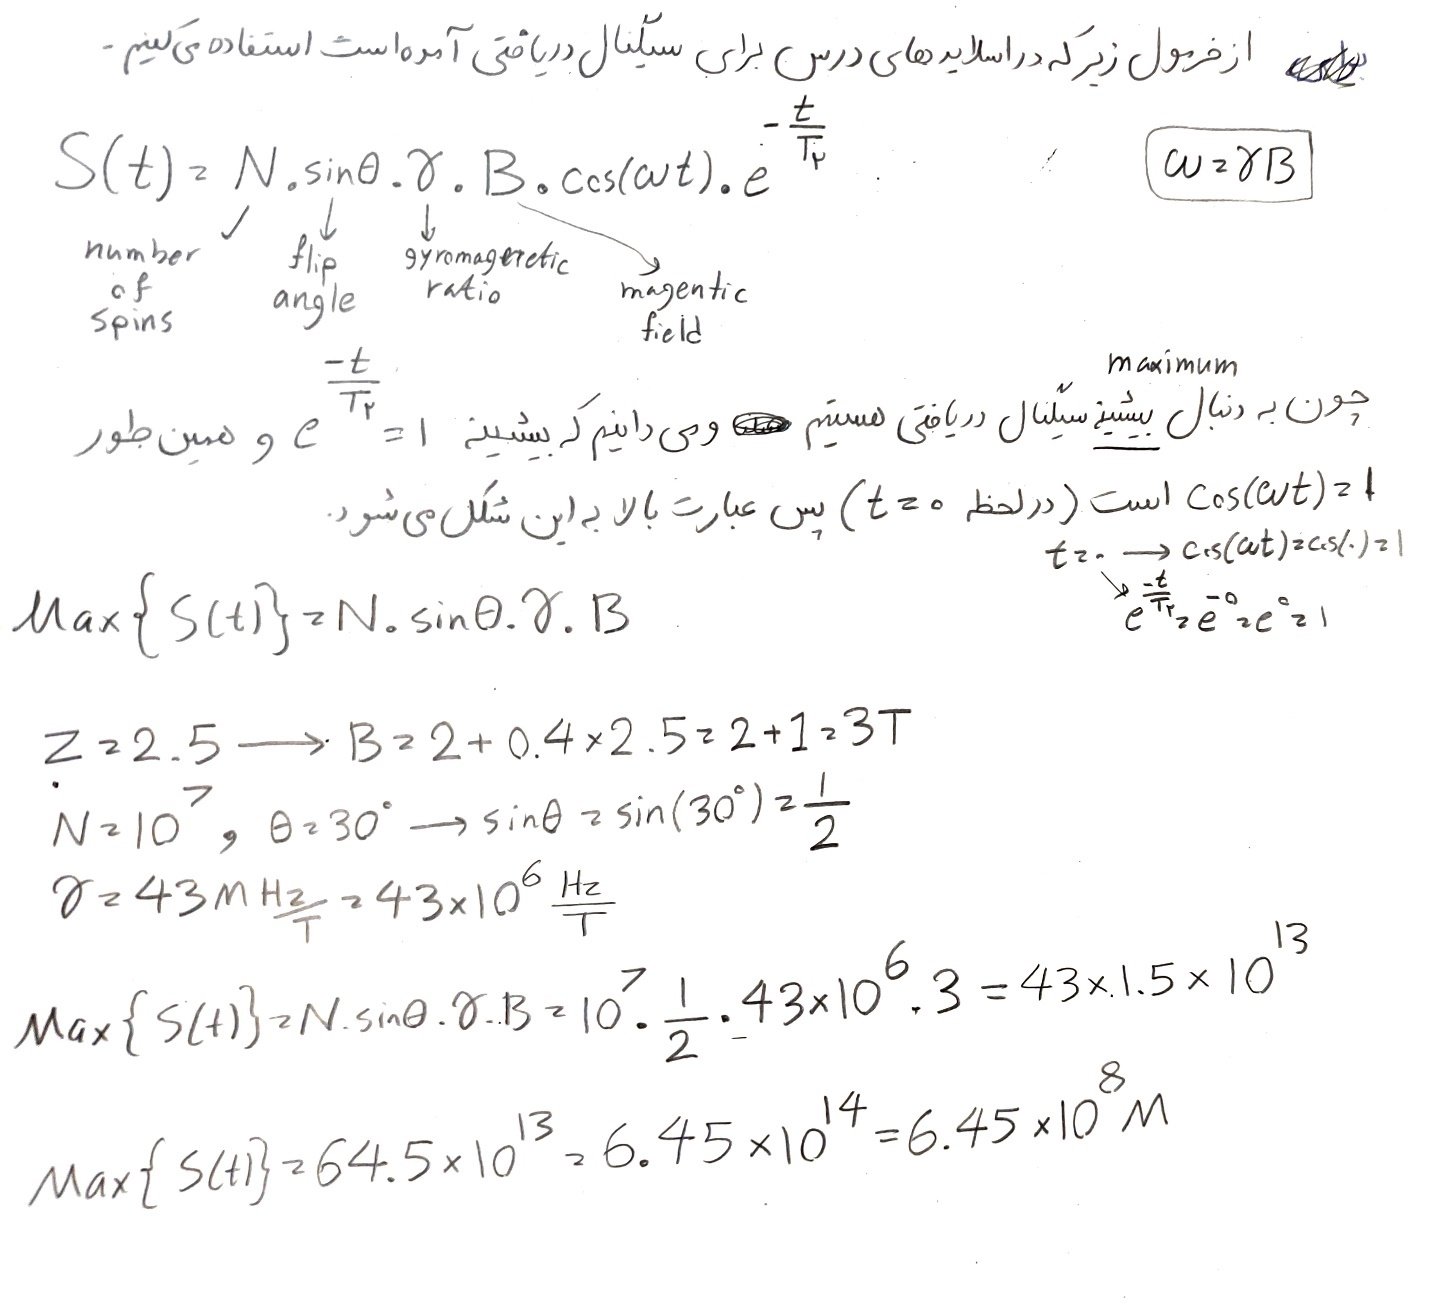 از فرمول زیر که در اسلایدهای درس برای سیگنال دریافتی آمده است استفاده می‌کنیم.
S(t) = N . sinθ . γ . B . cos(ωt) . e^(-t/T۲)
ω = γB
number of spins
flip angle
gyromageretic ratio
magentic field
maximum
چون به دنبال بیشینه سیگنال دریافتی هستیم و می دانیم که بیشینه e^(-t/T۲) = 1 و همین طور
cos(ωt) = 1 است (در لحظه t = 0) پس عبارت بالا به این شکل می شود.
t = 0 → cos(ωt) = cos(0) = 1
e^(-t/T۲) = e^-0 = e^0 = 1
Max{S(t)} = N. sinθ. γ. B
Z = 2.5 → B = 2 + 0.4 × 2.5 = 2 + 1 = 3T
N = 10^7 , θ = 30° → sinθ = sin(30°) = 1/2
γ = 43 M Hz/T = 43 × 10^6 Hz/T
Max{S(t)} = N. sinθ. γ. B = 10^7 . 1/2 . 43 × 10^6 . 3 = 43 × 1.5 × 10^13
Max{S(t)} = 64.5 × 10^13 = 6.45 × 10^14 = 6.45 × 10^8 M